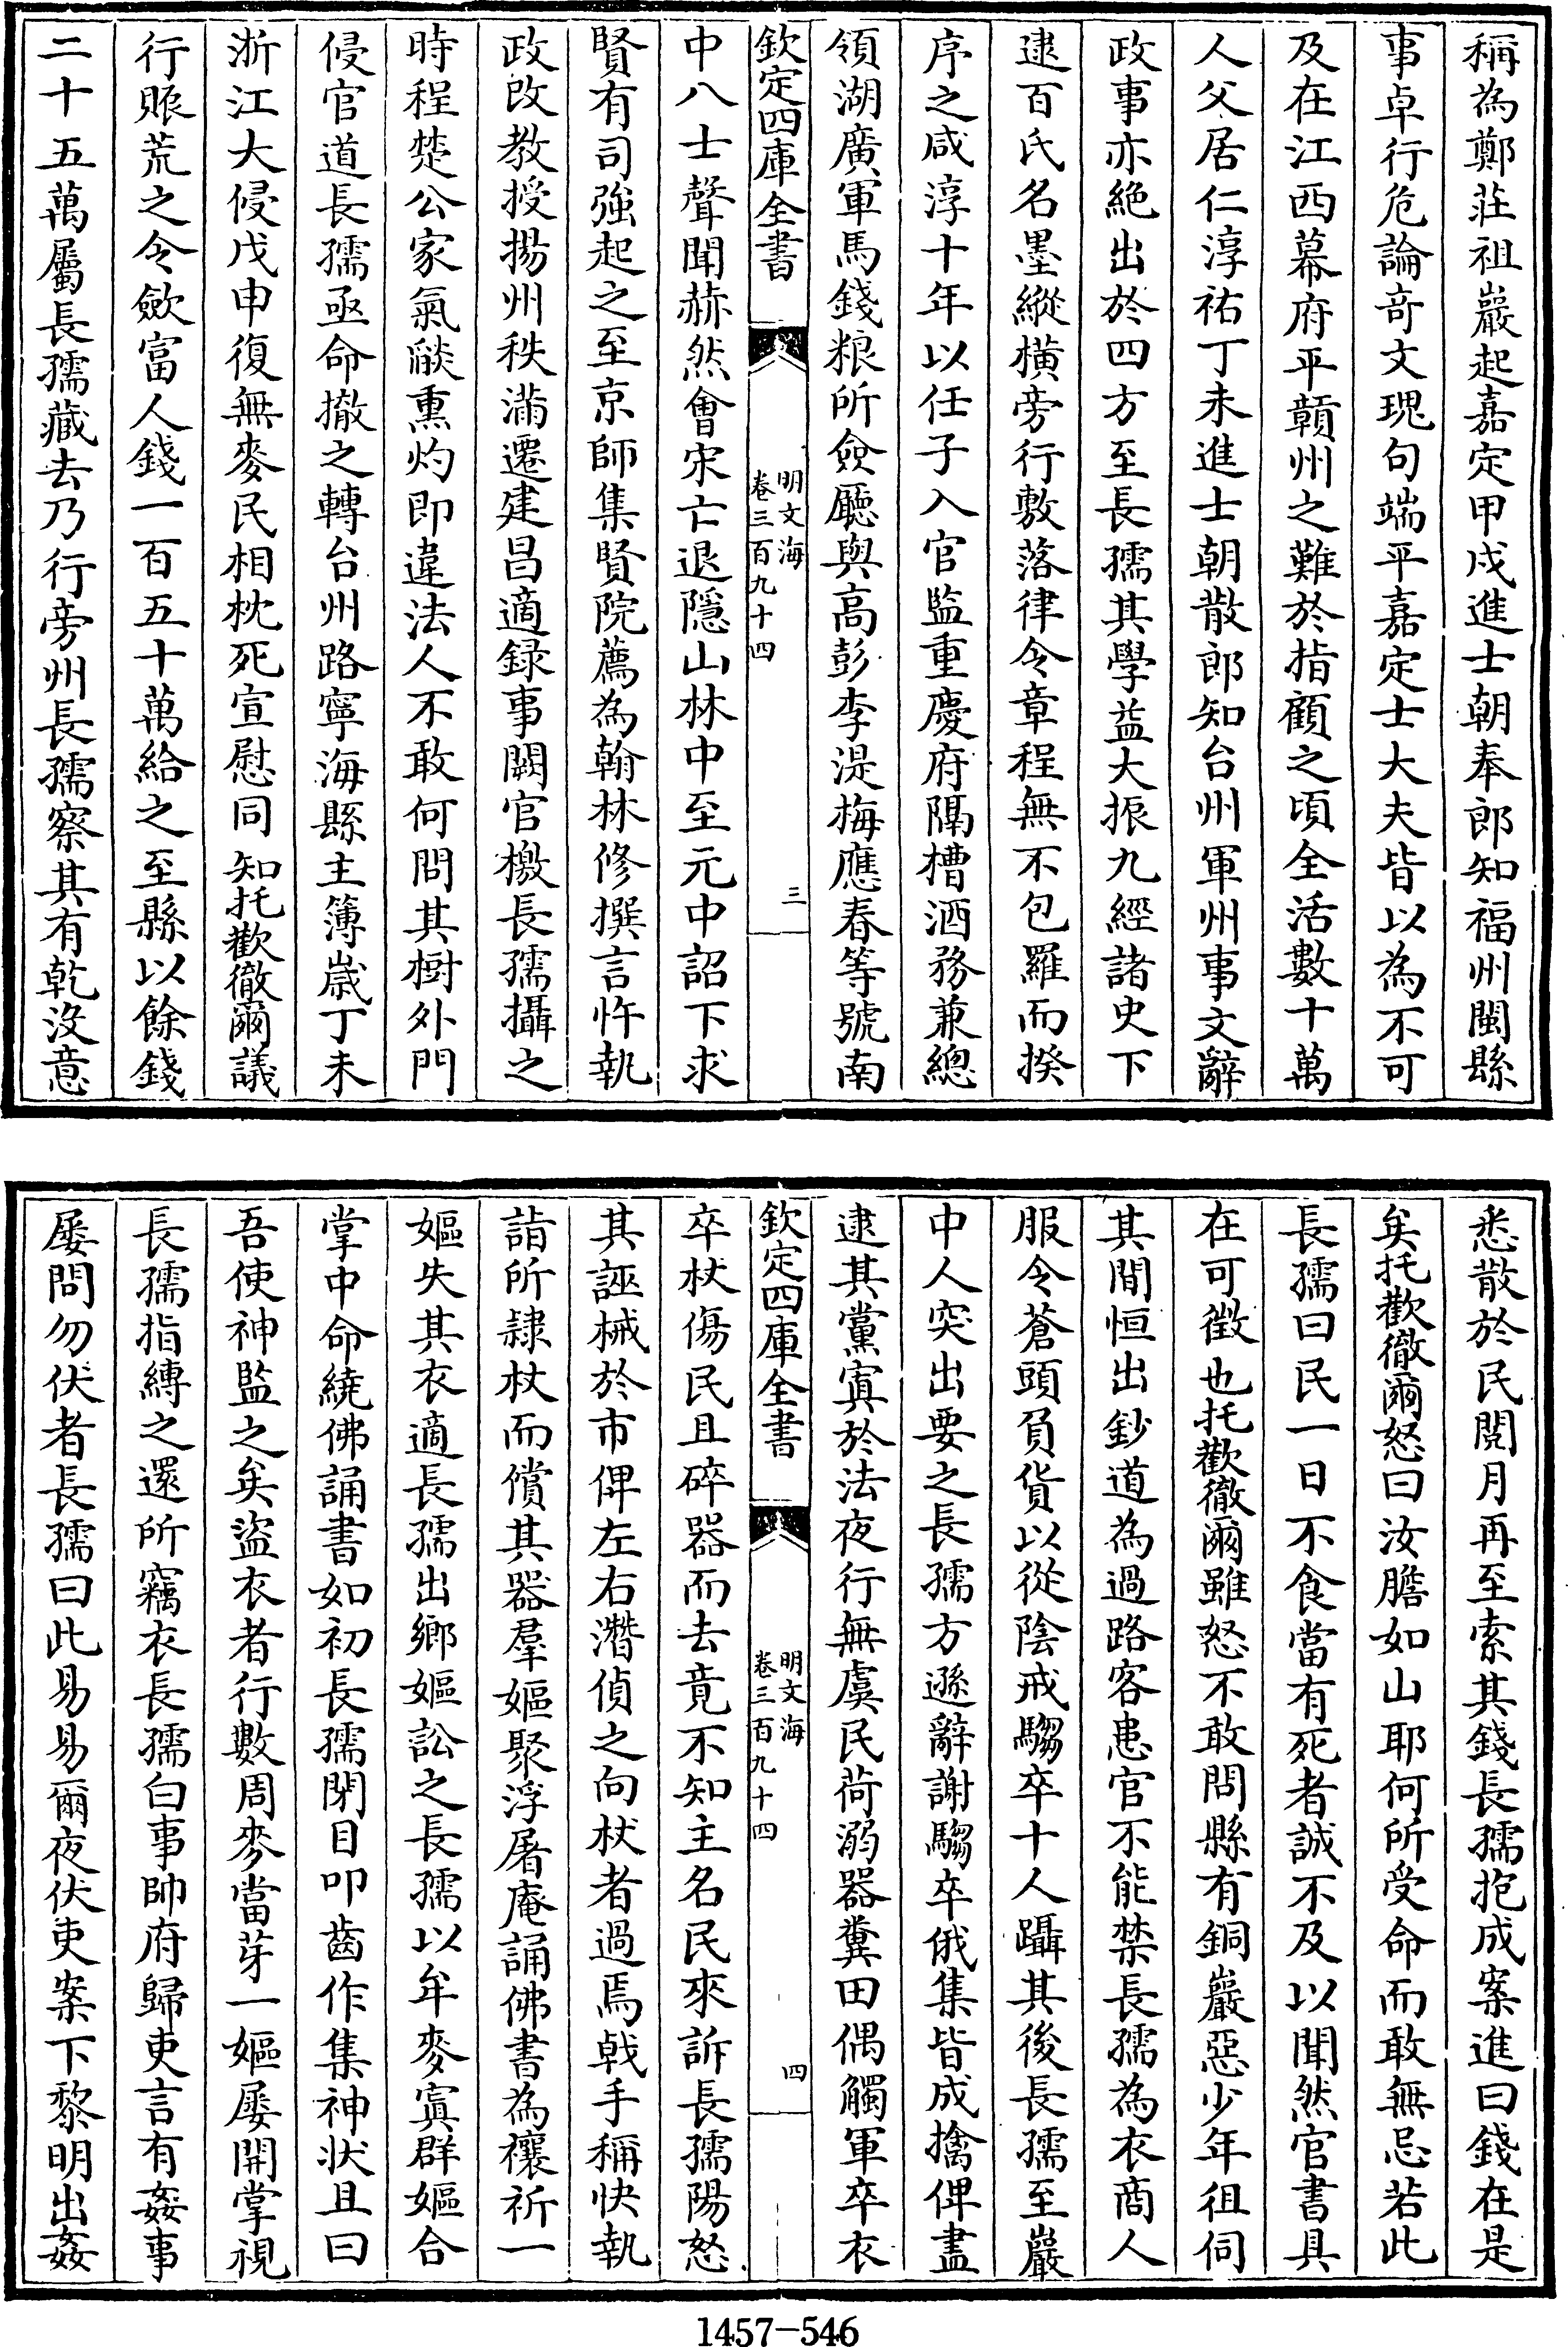 稱為鄭莊祖巖起嘉定甲戍進士朝奉郎知福州閩縣
事卓行危論奇文瑰句端平嘉定士大夫皆以為不可
及在江西幕府平贛州之難於指顧之頃全活數十萬
人父居仁淳祐丁未進士朝散郎知台州軍州事文辭
政事亦絶出於四方至長孺其學益大振九經諸史下
逮百氏名墨縱橫旁行敷落律令章程無不包羅而揆
序之咸淳十年以任子入官監重慶府隅槽酒務兼總
領湖廣軍馬錢粮所僉廳與高彭李湜梅應春等號南
欽定四庫全書
明文海
卷三百九十四
三
中八士聲聞赫然會宋亡退隱山林中至元中詔下求
賢有司強起之至京師集賢院薦為翰林修撰言忤執
政改教授揚州秩滿遷建昌適録事闕官檄長孺攝之
時程楚公家氣燄熏灼即違法人不敢何問其樹外門
侵官道長孺亟命撤之轉台州路寧海縣主簿歳丁未
浙江大侵戊申復無麥民相枕死宣慰同知托歡徹爾議
行賑荒之令歛富人錢一百五十萬給之至縣以餘錢
二十五萬屬長孺藏去乃行旁州長孺察其有乾沒意
悉散於民閱月再至索其錢長孺抱成案進曰錢在是
矣托歡徹爾怒曰汝膽如山耶何所受命而敢無忌若此
長孺曰民一日不食當有死者誠不及以聞然官書具
在可徵也托歡徹爾雖怒不敢問縣有銅巖惡少年徂伺
其間恒出鈔道為過路客患官不能禁長孺為衣商人
服令蒼頭負貨以從陰戒騶卒十人躡其後長孺至巖
中人突出要之長孺方遜辭謝騶卒俄集皆成擒俾盡
逮其黨寘於法夜行無虞民荷溺器糞田偶觸軍卒衣
欽定四庫全書
明文海
卷三百九十四
四
卒杖傷民且碎器而去竟不知主名民來訴長孺陽怒
其誣械於市俾左右潛偵之向杖者過焉戟手稱快執
詣所隷杖而償其器羣嫗聚浮屠庵誦佛書為禳祈一
嫗失其衣適長孺出鄉嫗訟之長孺以牟麥寘群嫗合
掌中命繞佛誦書如初長孺閉目叩齒作集神状且曰
吾使神監之矣盜衣者行數周麥當芽一嫗屢開掌視
長孺指縛之還所竊衣長孺白事帥府歸吏言有姦事
屢問勿伏者長孺曰此易易爾夜伏吏案下黎明出姦
1457-546